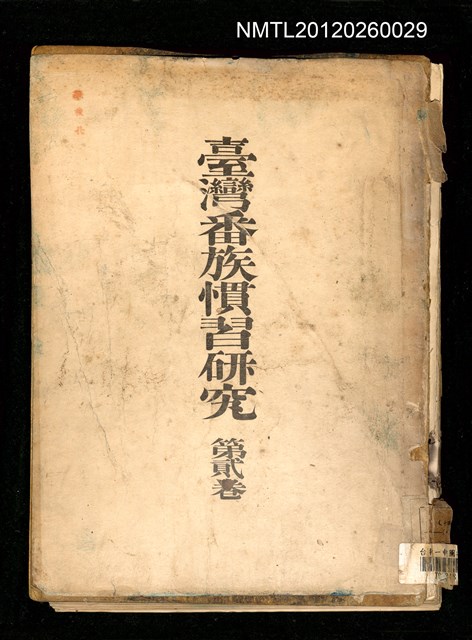 NMTL20120260029
臺灣番族慣習研究
第貳卷